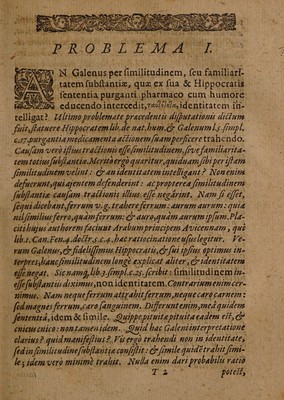 PROBLEMA I.
AN Galenus per similitudinem, seu familiari-
tatem substantiæ, quæ ex sua & Hippocratis
sententia purganti pharmaco cum humore
educendo intercedit, identitatem in-
telligat? Ultimo problemate præcedentis disputationis dictum
fuit, statuere Hippocratem lib. de nat. hum. & Galenum l. 3. simpl.
c. 27. purgantia medicamenta actionem suam perficere trahendo.
Causam vero istius tractionis esse similitudinem, seve familiarita-
tem totius substantiæ. Merito ergo quæritur, quid nam sibi per istam
similitudinem velint: & an identitatem intelligant? Non enim
defuerunt, qui ajentem defenderint: ac propterea similitudinem
substantiæ causam tractionis illius esse negârint. Nam si esset,
sequi dicebant, ferrum v. g. trahere ferrum: aurum aurum: quia
nil similius ferro, quàm ferrum: & auro, quàm aurum ipsum. Pla-
citi hujus authorem faciunt Arabum principem Avicennam, qui
lib. 1. Can. Fen. 4. doct. 5. c. 4. hac ratiocinatione usus legitur. Ve-
rum Galenus, & fidelissimus Hippocratis, & sui ipsius optimus in-
terpres, hanc similitudinem longè explicat aliter, & identitatem
esse negat. Sic namq, lib. 3. simpl. c. 25. scribit: similitudinem in-
esse substantiis diximus, non identitatem. Contrarium enim cer-
nimus. Nam neque ferrum attrahit ferrum, neque caro carnem:
sed magnes ferrum, caro sanguinem. Differunt enim, meâ quidem
sententiâ, idem & simile. Quippe pituita pituita eadem est, &
cnicum cnico: non tamen idem. Quid hac Galeni interpretatione
clarius? quid manifestius? Vis ergò trahendi non in identitate,
sed in similitudine substantiæ consistit: & simile quidē trahit simi-
le; idem vero minimè trahit. Nulla enim dari probabilis ratio
T 2 potest,